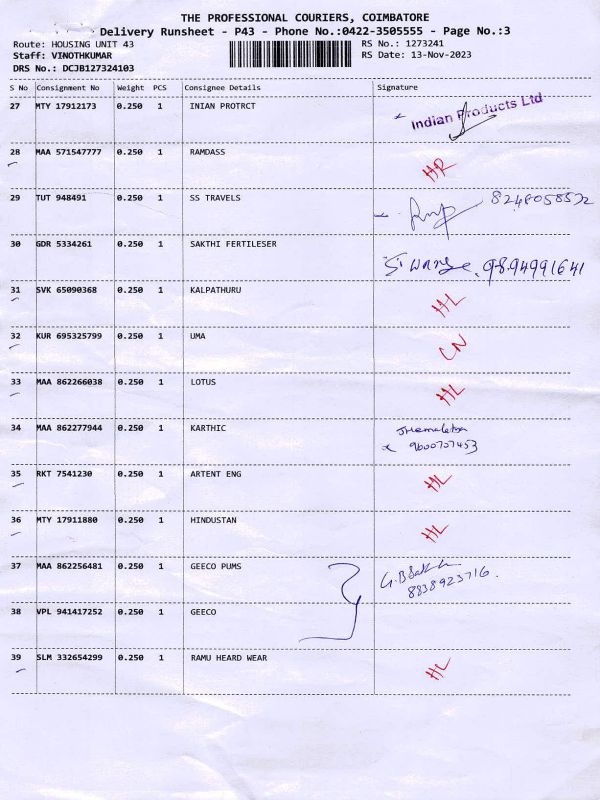 THE PROFESSIONAL COURIERS, COIMBATORE
Delivery Runsheet - P43 - Phone No.:0422-3505555 - Page No.:3
Route: HOUSING UNIT 43 RS No.: 1273241
Staff: VINOTHKUMAR RS Date: 13-Nov-2023
DRS No.: DCJB127324103
S No Consignment No Weight PCS Consignee Details Signature
27 MTY 17912173 0.250 1 INIAN PROTRCT Indian Products Ltd
28 MAA 571547777 0.250 1 RAMDASS HR
29 TUT 948491 0.250 1 SS TRAVELS
30 GDR 5334261 0.250 1 SAKTHI FERTILESER 9894991641
31 SVK 65090368 0.250 1 KALPATHURU HL
32 KUR 695325799 0.250 1 UMA CN
33 MAA 862266038 0.250 1 LOTUS HL
34 MAA 862277944 0.250 1 KARTHIC
9600707453
35 RKT 7541230 0.250 1 ARTENT ENG HL
36 MTY 17911880 0.250 1 HINDUSTAN HL
37 MAA 862256481 0.250 1 GEECO PUMS
8838923716.
38 VPL 941417252 0.250 1 GEECO
39 SLM 332654299 0.250 1 RAMU HEARD WEAR HL